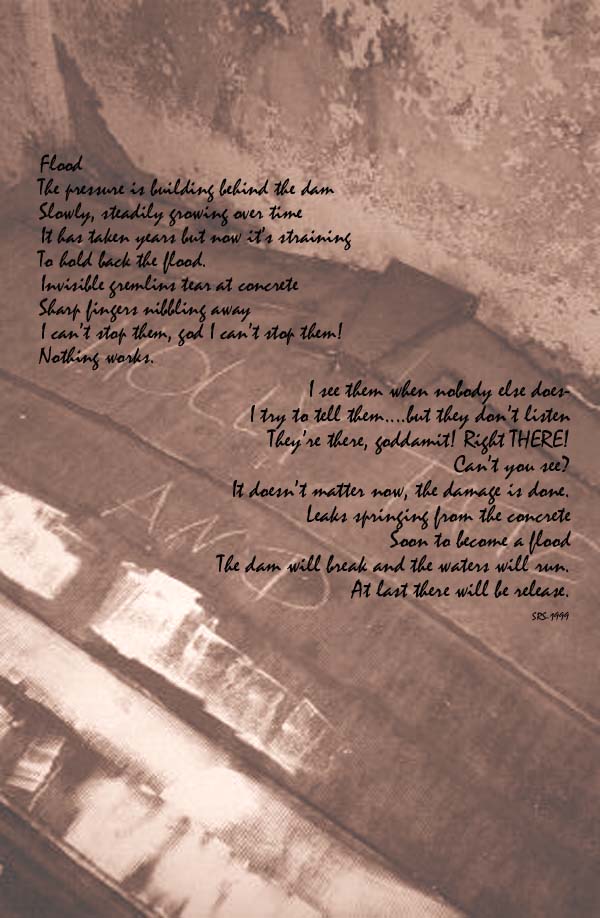 Flood
The pressure is building behind the dam
Slowly, steadily growing over time
It has taken years but now it's straining
To hold back the flood.
Invisible gremlins tear at concrete
Sharp fingers nibbling away
I can't stop them, god I can't stop them!
Nothing works.
I see them when nobody else does-
I try to tell them....but they don't listen
They're there, goddamit! Right THERE!
Can't you see?
It doesn't matter now, the damage is done.
Leaks springing from the concrete
Soon to become a flood
The dam will break and the waters will run.
At last there will be release.
SRS-1999
AND